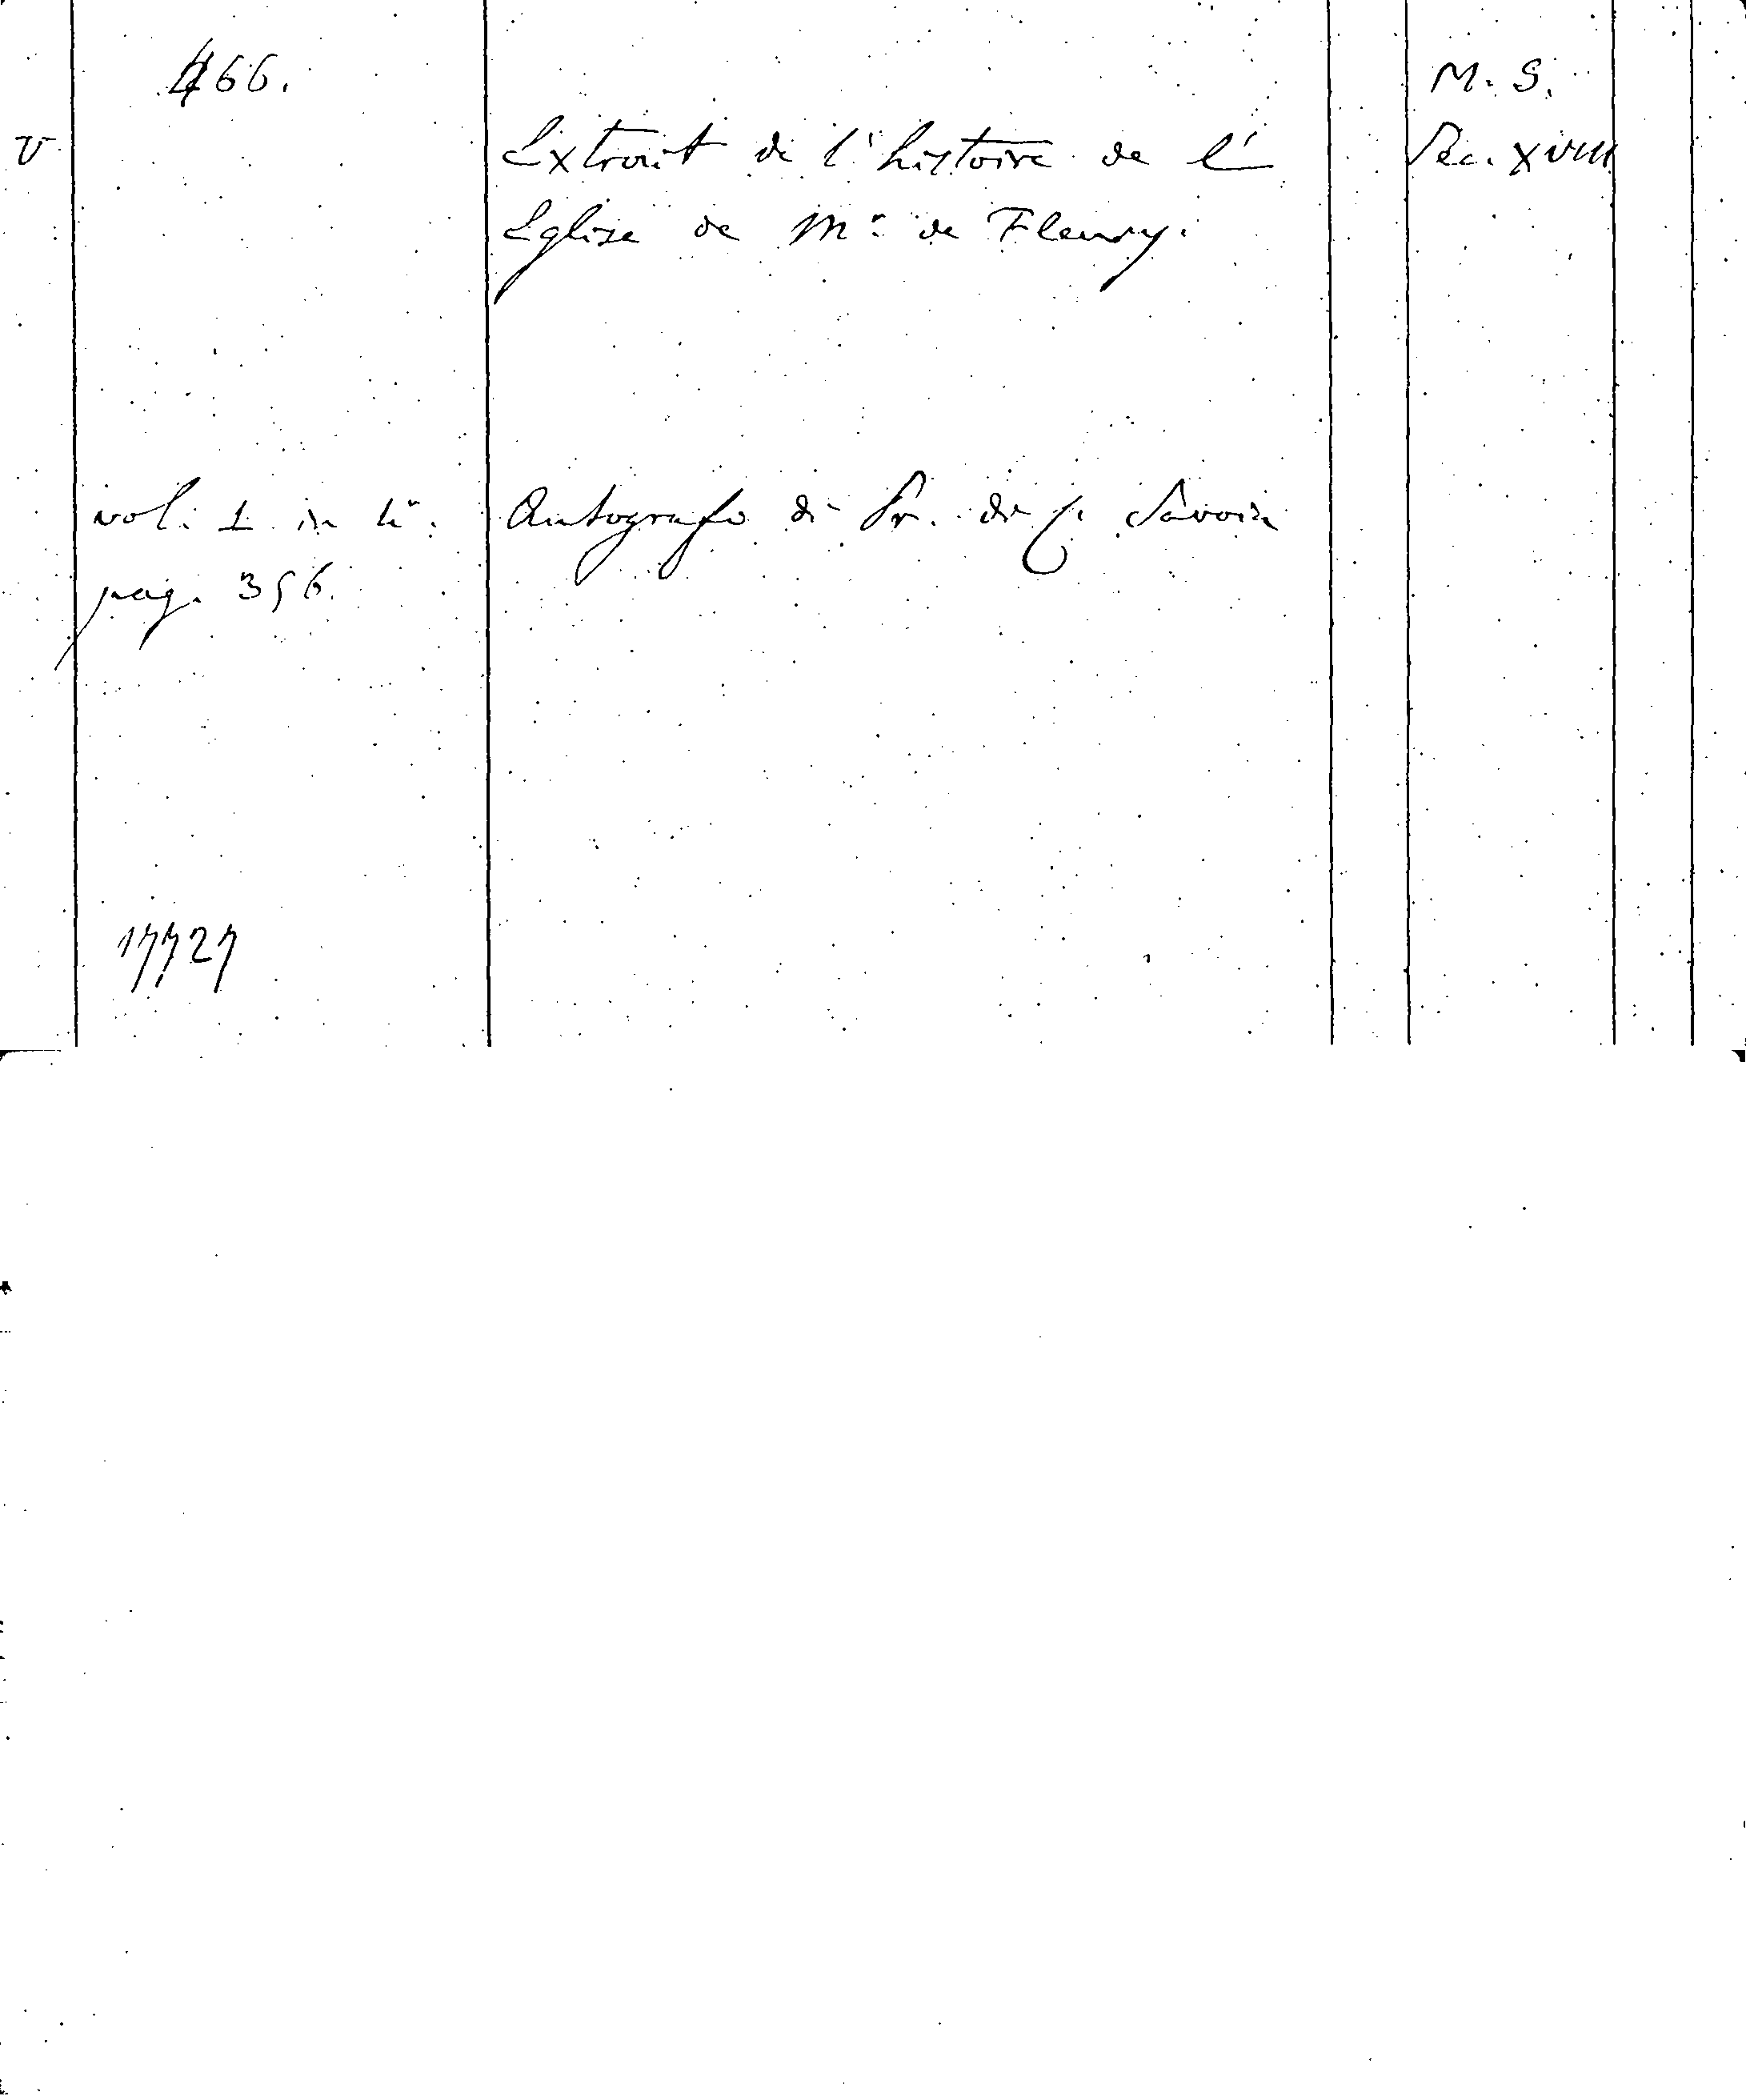 466. M. S.
V Extrait de l'histoire de l' Sec. XVIII
Eglise de Mr. de Fleury.
vol. 1 in 4°. Autografo di Pr. di C. Savoia
pag. 356.
17727